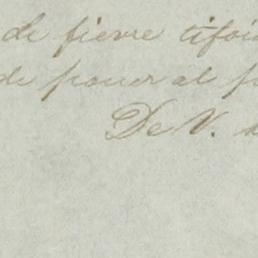 de fievre tifoi
de poner al p
De V. a